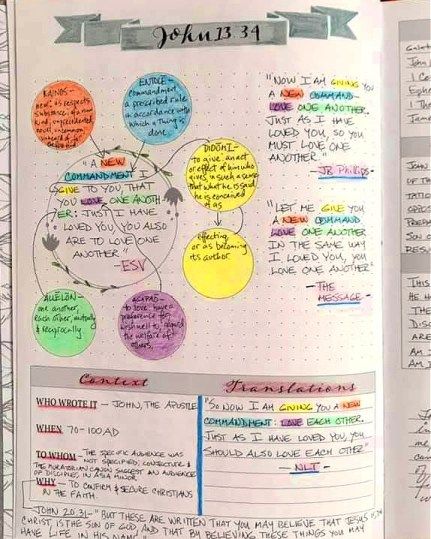 John 13:34
KAINOS -
new; as respects
substance, of a new
kind, unprecedented
novel, uncommon,
unheard of
ENTOLE -
Commandment
a prescribed rule
in accordance with
which a thing is
done
"A NEW
COMMANDMENT I
GIVE TO YOU, THAT
YOU LOVE ONE ANOTH
ER: JUST AS I HAVE
LOVED YOU, YOU ALSO
ARE TO LOVE ONE
ANOTHER."
- ESV
DIDOMI -
to give; an act
or effect of him who
gives, in such a sense
that what he is said
he is conceived
of as
effecting
or as becoming
its author
ALLELON -
one another,
each other, mutually
& reciprocally
AGAPAO -
to love, have a
preference for,
wish well to, regard
the welfare of
others
"NOW I AM GIVING YOU
A NEW COMMAND -
LOVE ONE ANOTHER.
JUST AS I HAVE
LOVED YOU, SO YOU
MUST LOVE ONE
ANOTHER."
- JB Phillips -
"LET ME GIVE YOU
A NEW COMMAND
LOVE ONE ANOTHER
IN THE SAME WAY
I LOVED YOU, YOU
LOVE ONE ANOTHER"
- THE
MESSAGE -
Context
WHO WROTE IT - JOHN, THE APOSTLE
WHEN 70-100 AD
TO WHOM - THE SPECIFIC AUDIENCE WAS
NOT SPECIFIED, CONJECTURE &
THE MURATORIAN CANON SUGGEST AN AUDIENCE
OF DISCIPLES IN ASIA MINOR
WHY - TO CONFIRM & SECURE CHRISTIANS
IN THE FAITH.
Translations
"SO NOW I AM GIVING YOU A NEW
COMMANDMENT: LOVE EACH OTHER.
JUST AS I HAVE LOVED YOU, YOU
SHOULD ALSO LOVE EACH OTHER"
- NLT -
JOHN 20:31 - "BUT THESE ARE WRITTEN THAT YOU MAY BELIEVE THAT JESUS IS THE
CHRIST, THE SON OF GOD AND THAT BY BELIEVING THESE THINGS YOU MAY
HAVE LIFE IN HIS NAME."